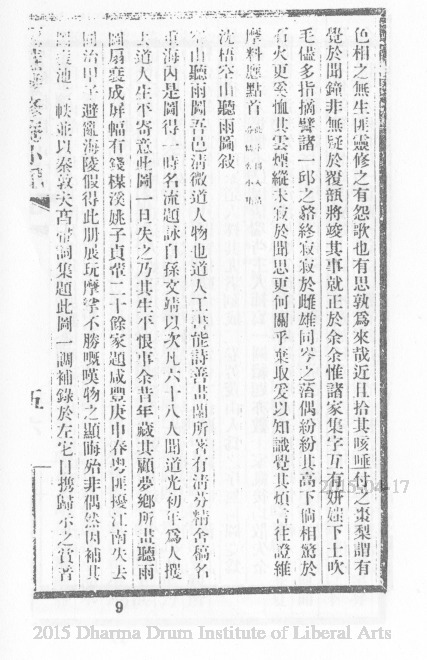 色相之無生匪靈修之有怨歌也有思孰爲來哉近且拾其咳唾付之棗梨謂有
覺於聞鐘非無疑於覆瓿將竣其事就正於余余惟諸家集字互有妍媸下士吹
毛儘多指摘譬諸一邱之貉終寂寂於雌雄同岑之治偶紛紛其高下倘相驚於
石火更奚恤其雲煙縱未寂於聞思更何關乎棄取爰以知識覺其煩言往證維
摩料應點首
沈梧空山聽雨圖敍
空山聽雨圖吾邑清微道人物也道人工書能詩善畫蘭所著有清芬精舍稿名
重海內是圖得一時名流題詠自孫文靖以次凡六十八人聞道光初年爲人攫
去道人生平寄意此圖一旦失之乃其生平恨事余昔年藏其顧夢鄉所畫聽雨
圖扇裝成屏幅有錢楳溪姚子貞輩二十餘家題咸豐庚申春粵匪擾江南失去
同治甲子避亂海陵假得此册展玩摩挲不勝嘅嘆物之顯晦殆非偶然因補其
池一帙並以秦敦夫 詞集題此圖一調補錄於左它日攜歸示之賞音
五
2015-04-17
9
2015 Dharma Drum Institute of Liberal Arts